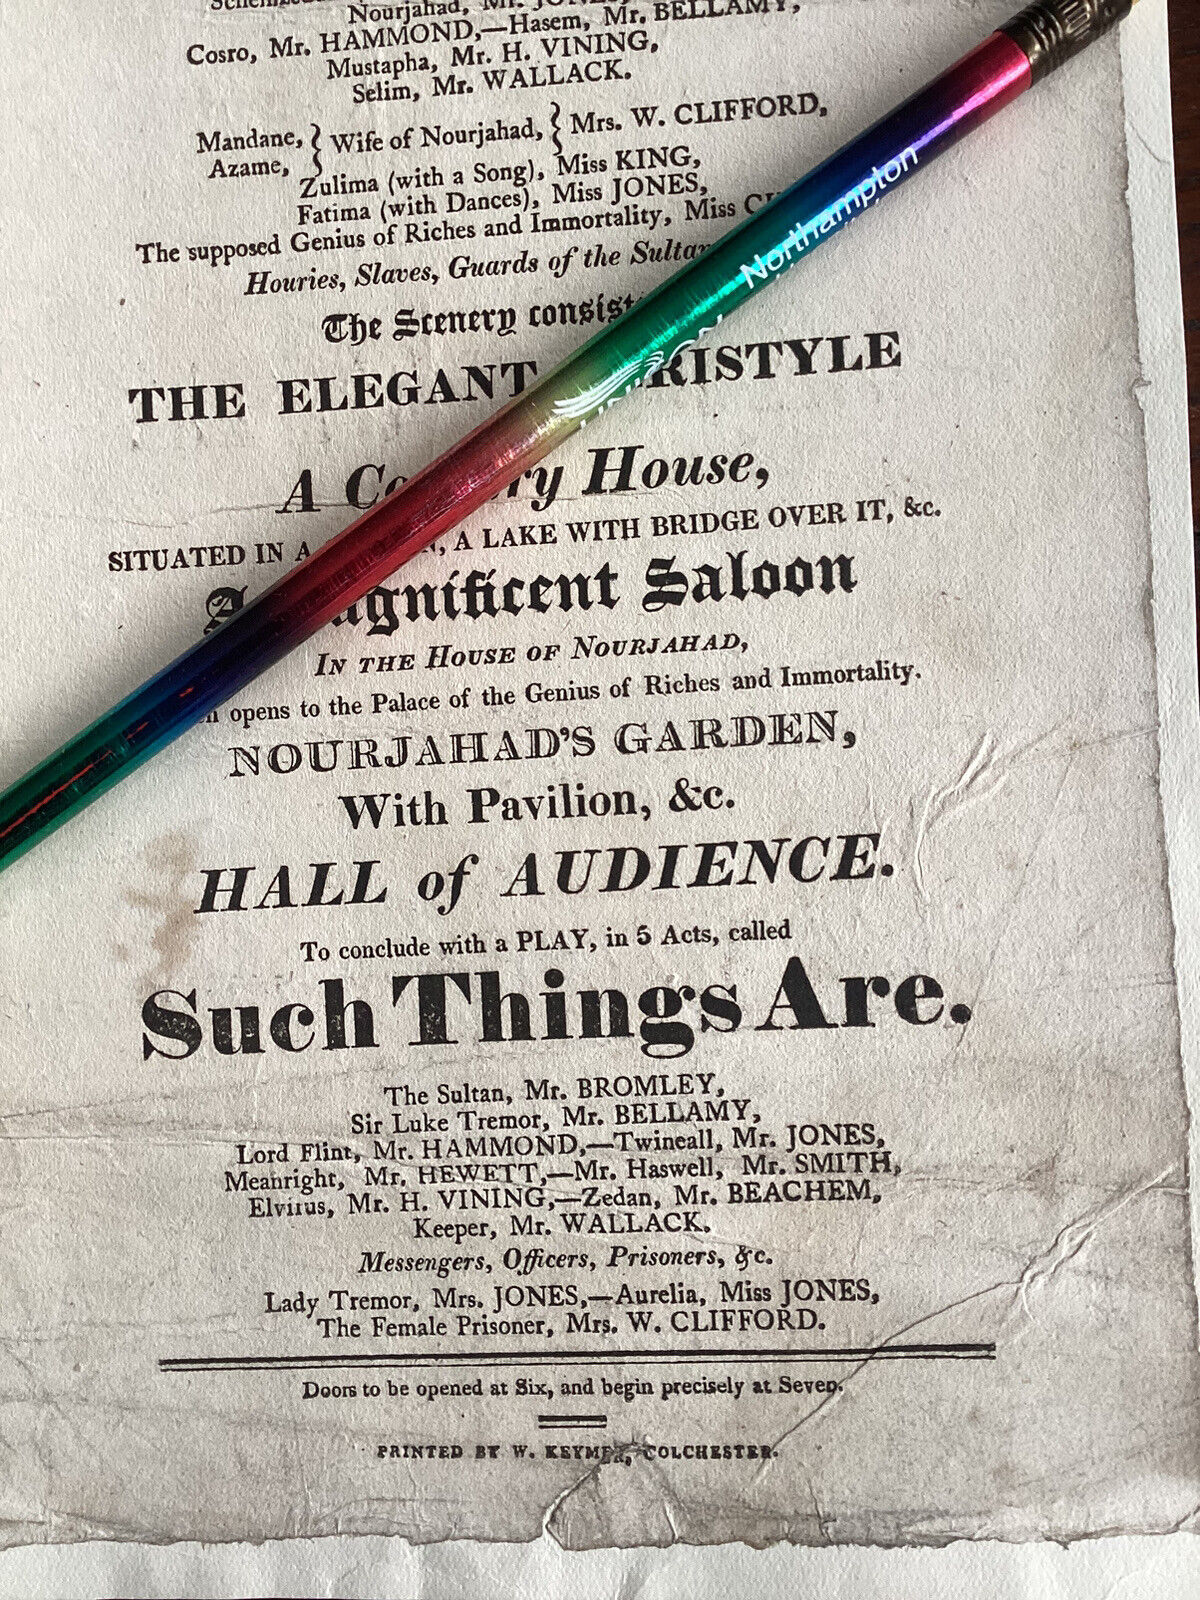 Nourjahad, Mr. JONES,
Cosro, Mr. HAMMOND,—Hasem, Mr. BELLAMY,
Mustapha, Mr. H. VINING,
Selim, Mr. WALLACK.
Mandane, } Wife of Nourjahad, } Mrs. W. CLIFFORD,
Azame,
Zulima (with a Song), Miss KING,
Fatima (with Dances), Miss JONES,
The supposed Genius of Riches and Immortality, Miss
Houries, Slaves, Guards of the
The Scenery
THE ELEGANT
A House,
SITUATED IN A A LAKE WITH BRIDGE OVER IT, &c.
A Saloon
IN THE HOUSE OF NOURJAHAD,
opens to the Palace of the Genius of Riches and Immortality.
NOURJAHAD'S GARDEN,
With Pavilion, &c.
HALL of AUDIENCE.
To conclude with a PLAY, in 5 Acts, called
Such Things Are.
The Sultan, Mr. BROMLEY,
Sir Luke Tremor, Mr. BELLAMY,
Lord Flint, Mr. HAMMOND,—Twineall, Mr. JONES,
Meanright, Mr. HEWETT,—Mr. Haswell, Mr. SMITH,
Elvirus, Mr. H. VINING,—Zedan, Mr. BEACHEM,
Keeper, Mr. WALLACK.
Messengers, Officers, Prisoners, &c.
Lady Tremor, Mrs. JONES,—Aurelia, Miss JONES,
The Female Prisoner, Mrs. W. CLIFFORD.
Doors to be opened at Six, and begin precisely at Seven.
PRINTED BY W. KEYMER, COLCHESTER.
Northampton